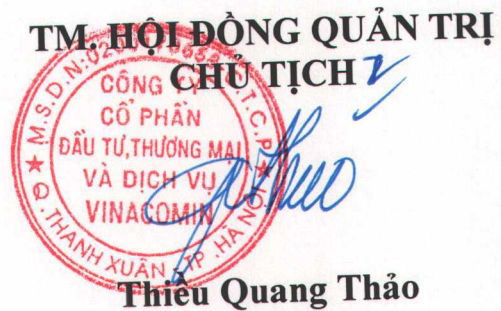 TM. HỘI ĐỒNG QUẢN TRỊ
CHỦ TỊCH
CÔNG
CỔ PHẦN
ĐẦU TƯ, THƯƠNG MẠI
VÀ DỊCH VỤ
VINACOMIN
M.S.D.N:
Q. THANH XUÂN - TP. HÀ NỘI
Thiều Quang Thảo